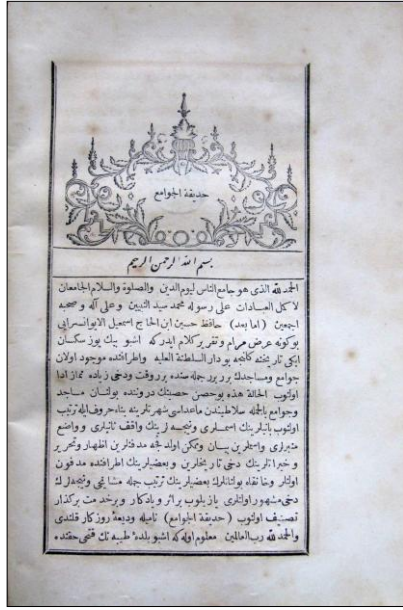 حديقة الجوامع
بسم الله الرحمن الرحيم
الحمد لله الذى هو جامع الناس ليوم الدين والصلوة والسلام الجامعان
لاكمل العبادات على رسوله محمد سيد النبيين وعلى آله وصحبه
اجمعين (اما بعد) حافظ حسين ابن الحاج اسمعيل الايوانسرايى
بوكونه عرض مرام وتقرير كلام ايدركه اشبو بيك يوز سكسان
ايكى تاريخنه كلنجه بو دار السلطنة العليه واطرافنده موجود اولان
جوامع ومساجدك برر برر جمله سنده بر وقت ودخى زياده نماز ادا
اولنوب الحالة هذه بو حصن حصينك دروننده بولنان مساجد
وجوامع بالجمله سلاطيندن ماعداسى شهرتلرينه بناء حروف ايله ترتيب
اولنوب بانيلرينك اسملرى ونيجه لرينك واقف ثانيلرى وواضع
منبرلرى واسملرين بيان وممكن اولدقجه مدفنلرين اظهار وتحرير
وخيراتلرينك دخى تاريخلرين وبعضيلرينك اطرافنده مدفون
اولنلر وخانقاه بولنانلرك بعضيلرينك ترتيب جمله مشايخى ونيجه لرك
دخى مشهور اولنلرى يازيلوب براثر ويادكار وبرخدمت بركذار
تصنيف اولنوب (حديقة الجوامع) ناميله وديعۀ روزكار قلندى
والحمد لله رب العالمين معلوم اوله كه اشبو بلدۀ طيبه نك فتحى حقنده